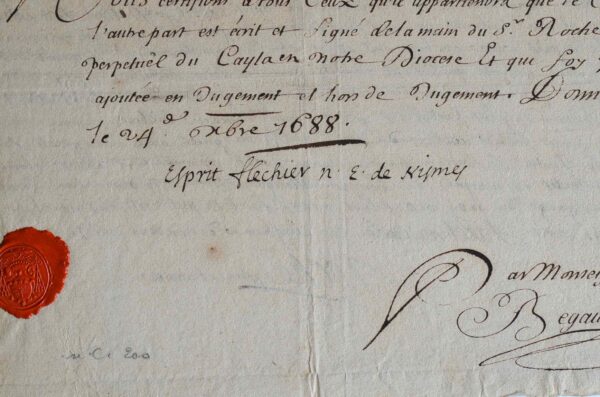 certifions a tous Ceux qu'il appartiendra que le C
l'autre part est écrit et signé dela main du Sr. Roche
perpetuël du Cayla en notre Diocese Et que foy
ajoutée en Jugement et hors de Jugement. Donn
le 24e. xbre 1688.
Esprit flechier n. E. de Nismes
Par Monsei
Begau